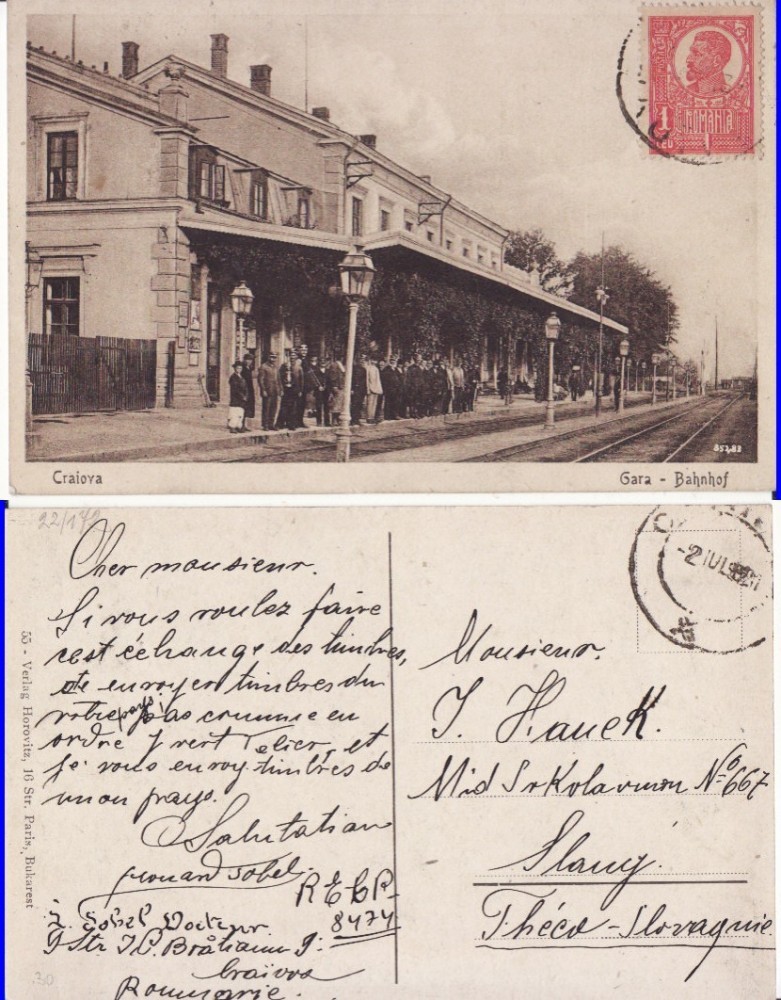 1
LEU
ROMANIA
1
853,82
Craiova
Gara - Bahnhof
22/172
Cher monsieur.
Si vous voulez faire
cest échange des timbres,
envoyer timbres du
votre pays comme en
ordre Yvert Telier, et
je vous envoy timbres de
mon pays.
Salutation
Sobel.
RECP-
8474
Sobel
Str. I.C. Brătianu 9.
Craiova
Roumanie.
55 - Verlag Horovitz, 16 Str. Paris, Bukarest
-2 IUL
Monsieur.
J. Hanck.
No 667
Slaný.
Théco-Slovaquie
30